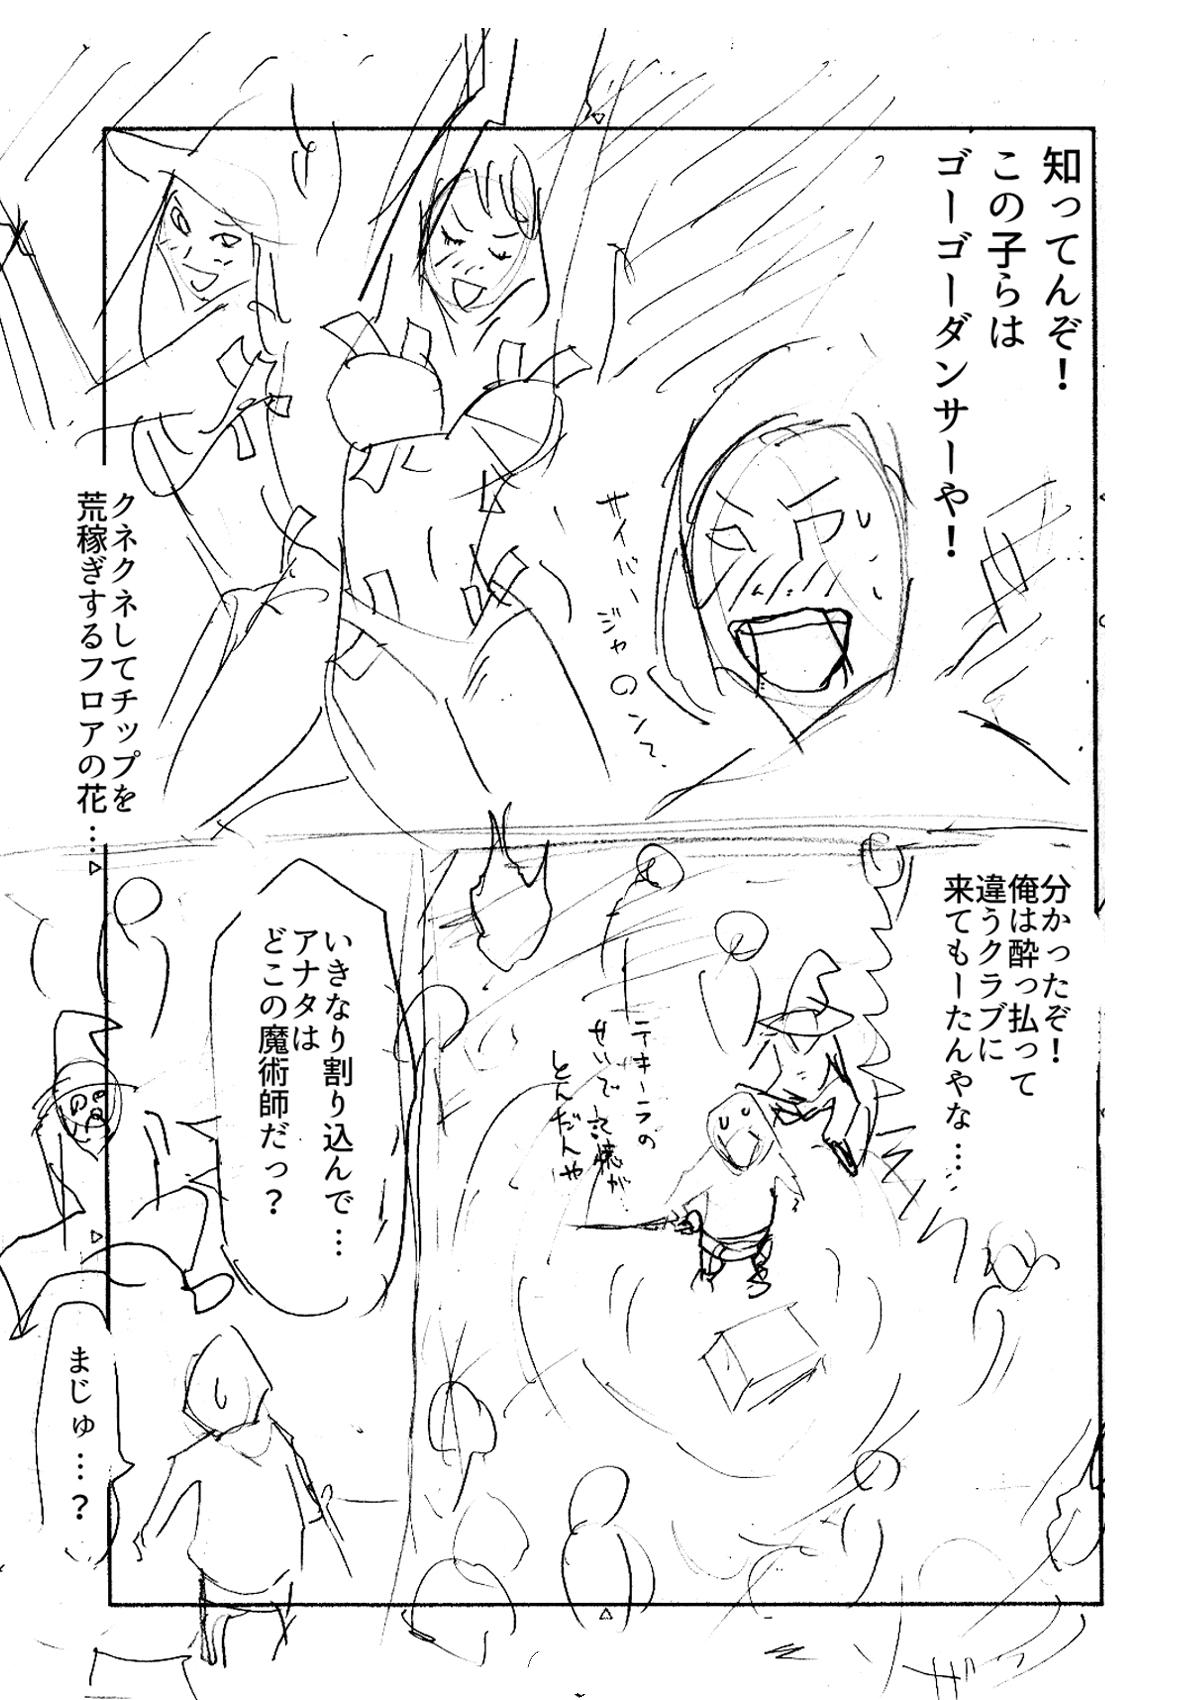 知ってんぞ！
この子らは
ゴーゴーダンサーや！
クネクネしてチップを
荒稼ぎするフロアの花…
分かったぞ！
俺は酔っ払って
違うクラブに
来てもーたんやな…
テキーラの
せいで記憶が
とんだんや
いきなり割り込んで…
アナタは
どこの魔術師だっ？
まじゅ…？